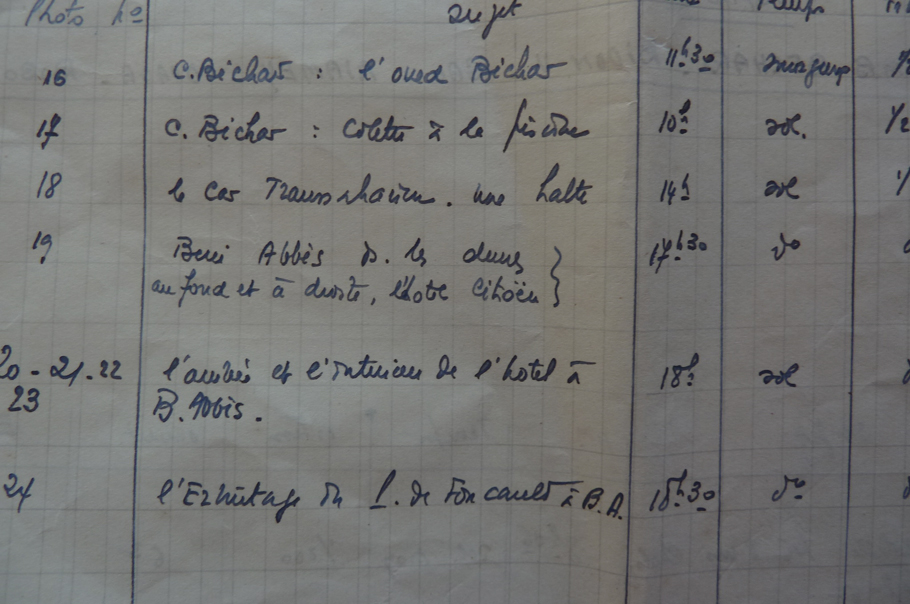 Photo No sujet Temps
16 C. Bechar : l'oued Bechar 11h30 nuageux
17 C. Bechar : Colette à la piscine 10h sol. 1/2
18 le car Transsaharien. une halte 14h sol
19 Beni Abbès ds. les dunes 17h30 do
au fond et à droite, l'hotel Citroën
20 - 21 - 22 l'arrivée et l'intérieur de l'hotel à 18h sol
23 B. Abbès.
24 l'Ermitage du P. de Foucault à B.A. 18h30 do